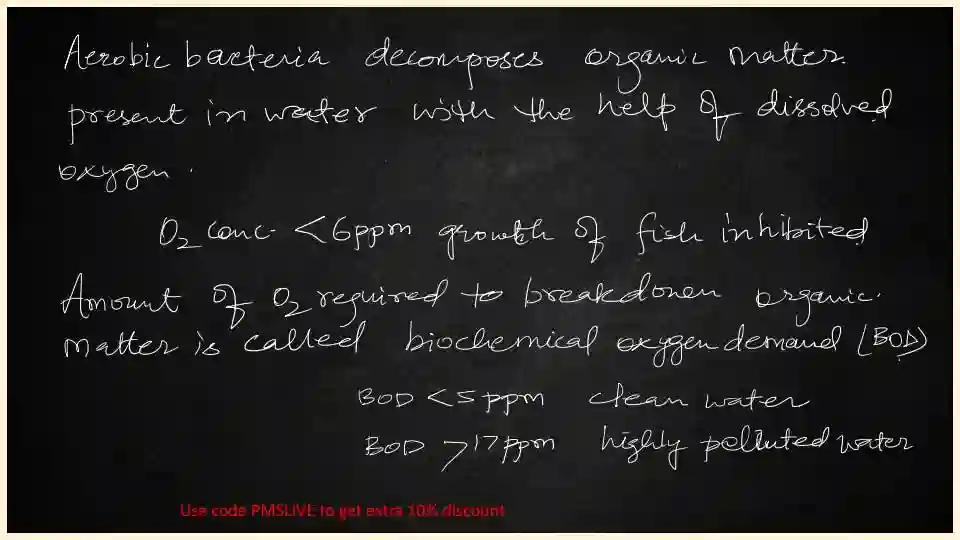 Aerobic bacteria decomposes organic matter.
present in water with the help of dissolved
oxygen.
O2 conc. <6ppm growth of fish inhibited
Amount of O2 required to breakdown organic.
matter is called biochemical oxygen demand (BOD)
BOD <5 ppm clean water
BOD >17 ppm highly polluted water
Use code PMSLIVE to get extra 10% discount